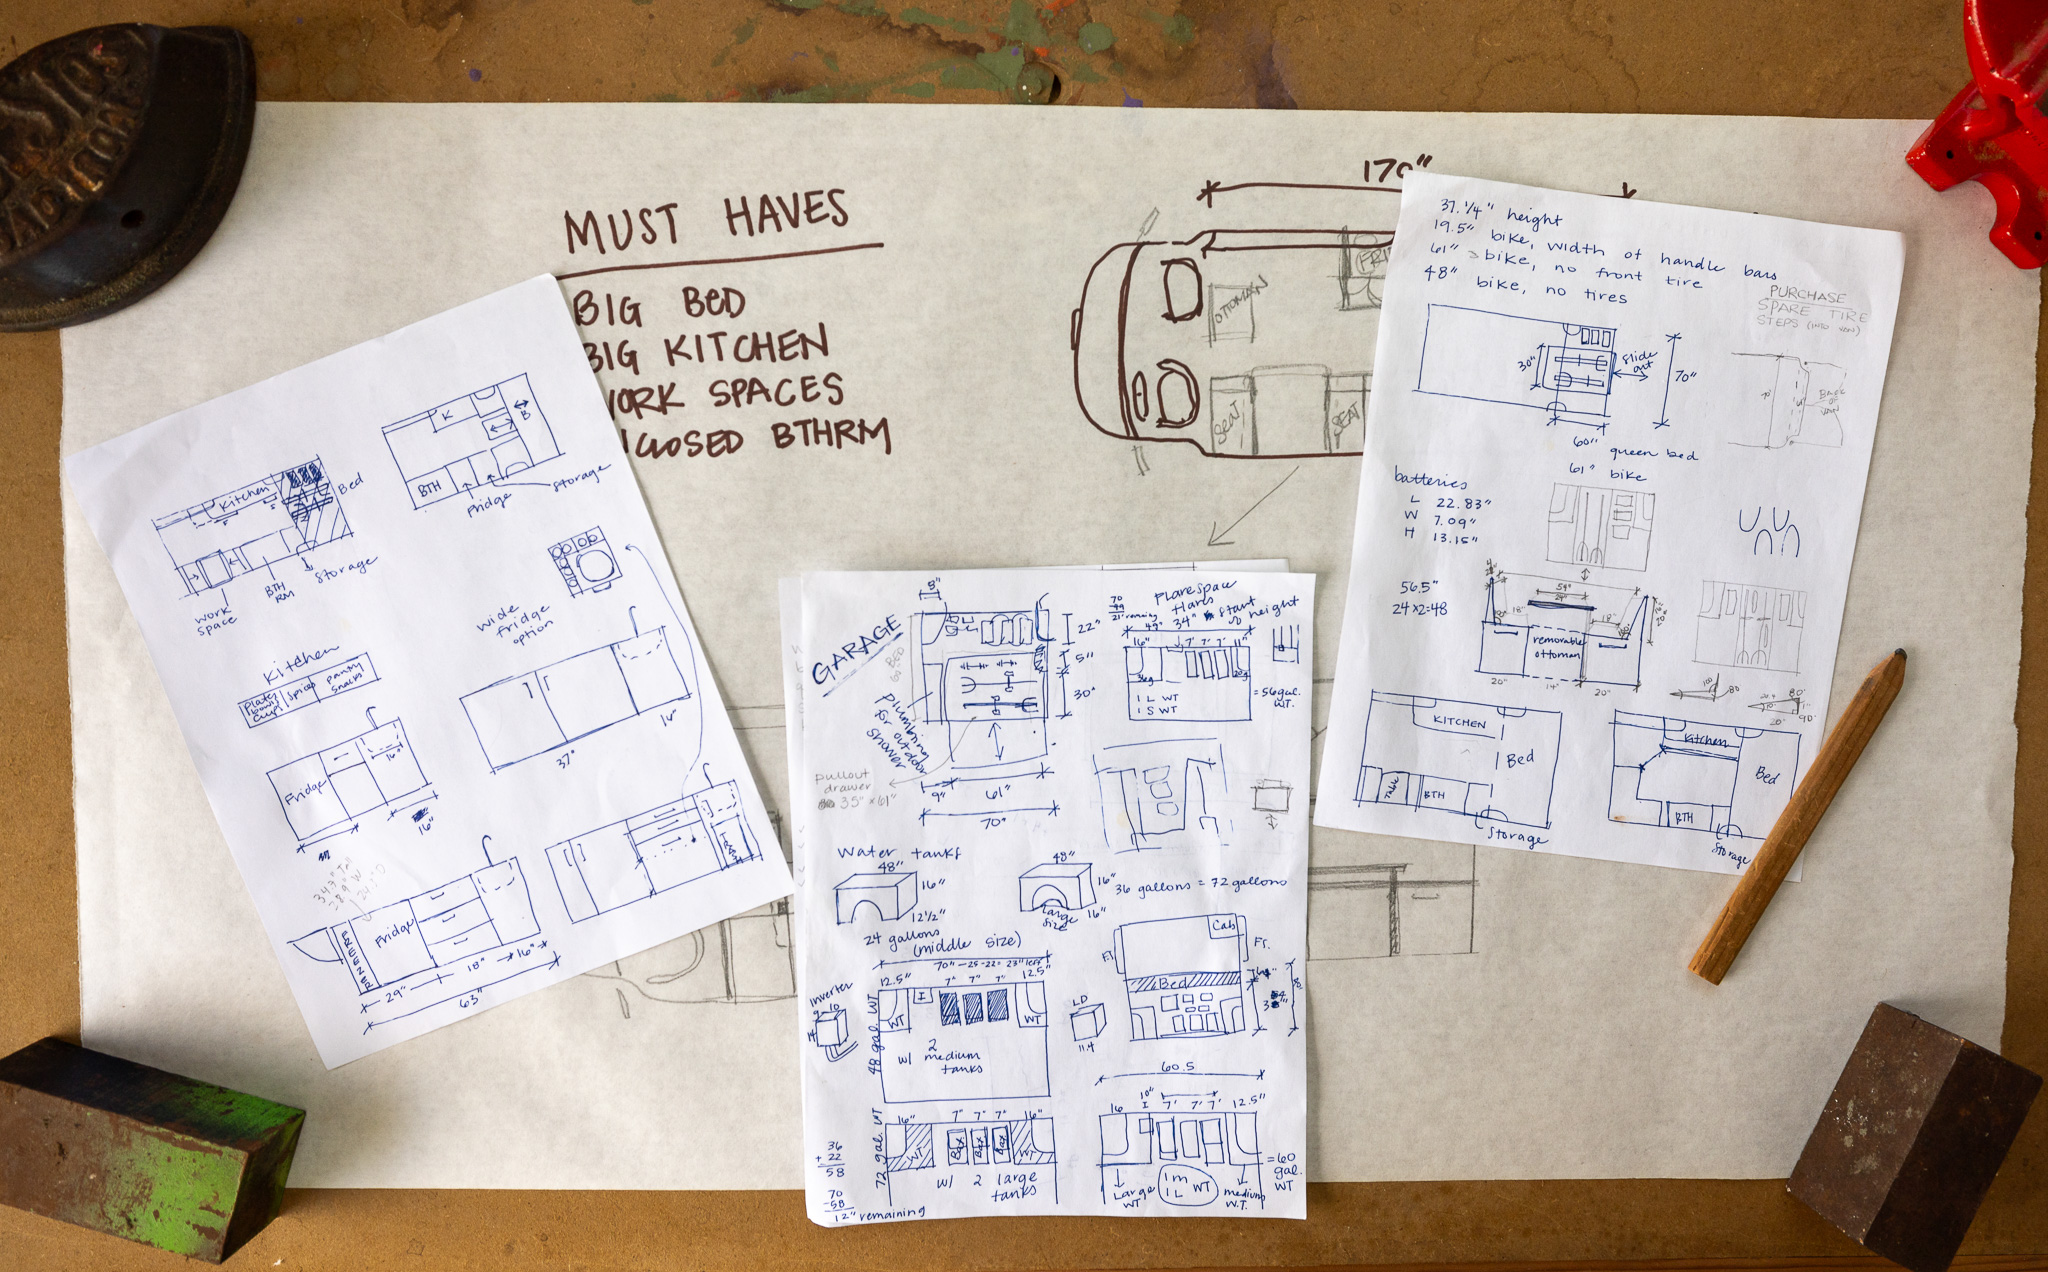 MUST HAVES
BIG BED
BIG KITCHEN
WORK SPACES
CLOSED BTHRM
170"
OTTOMAN
FRI
SEAT
SEAT
K
B
BTH
Fridge
Storage
Kitchen
Bed
Storage
BTH
RM
work
space
wide
fridge
option
Kitchen
Plates
bowls
cups
Spices
pantry
snacks
Fridge
16"
16"
37"
16"
34.7" Tall
28.9" W
24. " D
FREEZER
Fridge
29"
18"
16"
63"
GARAGE
5"
BED
60"
22"
5"
30"
plumbing
for outdoor
shower
pullout
drawer
35" x 61"
9"
61"
70"
70
49
21" remaining
49"
34"
start
height
16"
7"
7"
7"
11"
36g
20g
1 L WT
1 S WT
= 56 gal.
WT.
Water tanks
48"
16"
12 1/2"
24 gallons
(middle size)
48"
16"
Large
size
16"
36 gallons = 72 gallons
Cab
Fr.
Bed
Inverter
10
H
48 gal. WT
70" - 25 - 22 = 23" left
12.5"
7"
7"
7"
12.5"
I
WT
WT
w/ 2
medium
tanks
LD
11.4
72 gal. WT
16"
7"
7"
7"
16"
WT
Box
Box
Box
WT
w/ 2 large
tanks
36
+ 22
58
70
-58
12" remaining
60.5
16
10"
I
7"
7"
7"
12.5"
Large
WT
1 m
1 L
WT
medium
W.T.
= 60
gal.
WT
37.1/4" height
19.5" bike, width of handle bars
61" bike, no front tire
48" bike, no tires
PURCHASE
SPARE TIRE
STEPS (INTO VAN)
BACK
OF
VAN
30"
slide
out
70"
60" queen bed
61" bike
batteries
L 22.83"
W 7.09"
H 13.15"
56.5"
24 x 2 = 48
54"
24"
18"
18"
removable
ottoman
20"
14"
20"
80
20"
90°
KITCHEN
Bed
Table
BTH
Storage
Kitchen
Bed
BTH
Storage